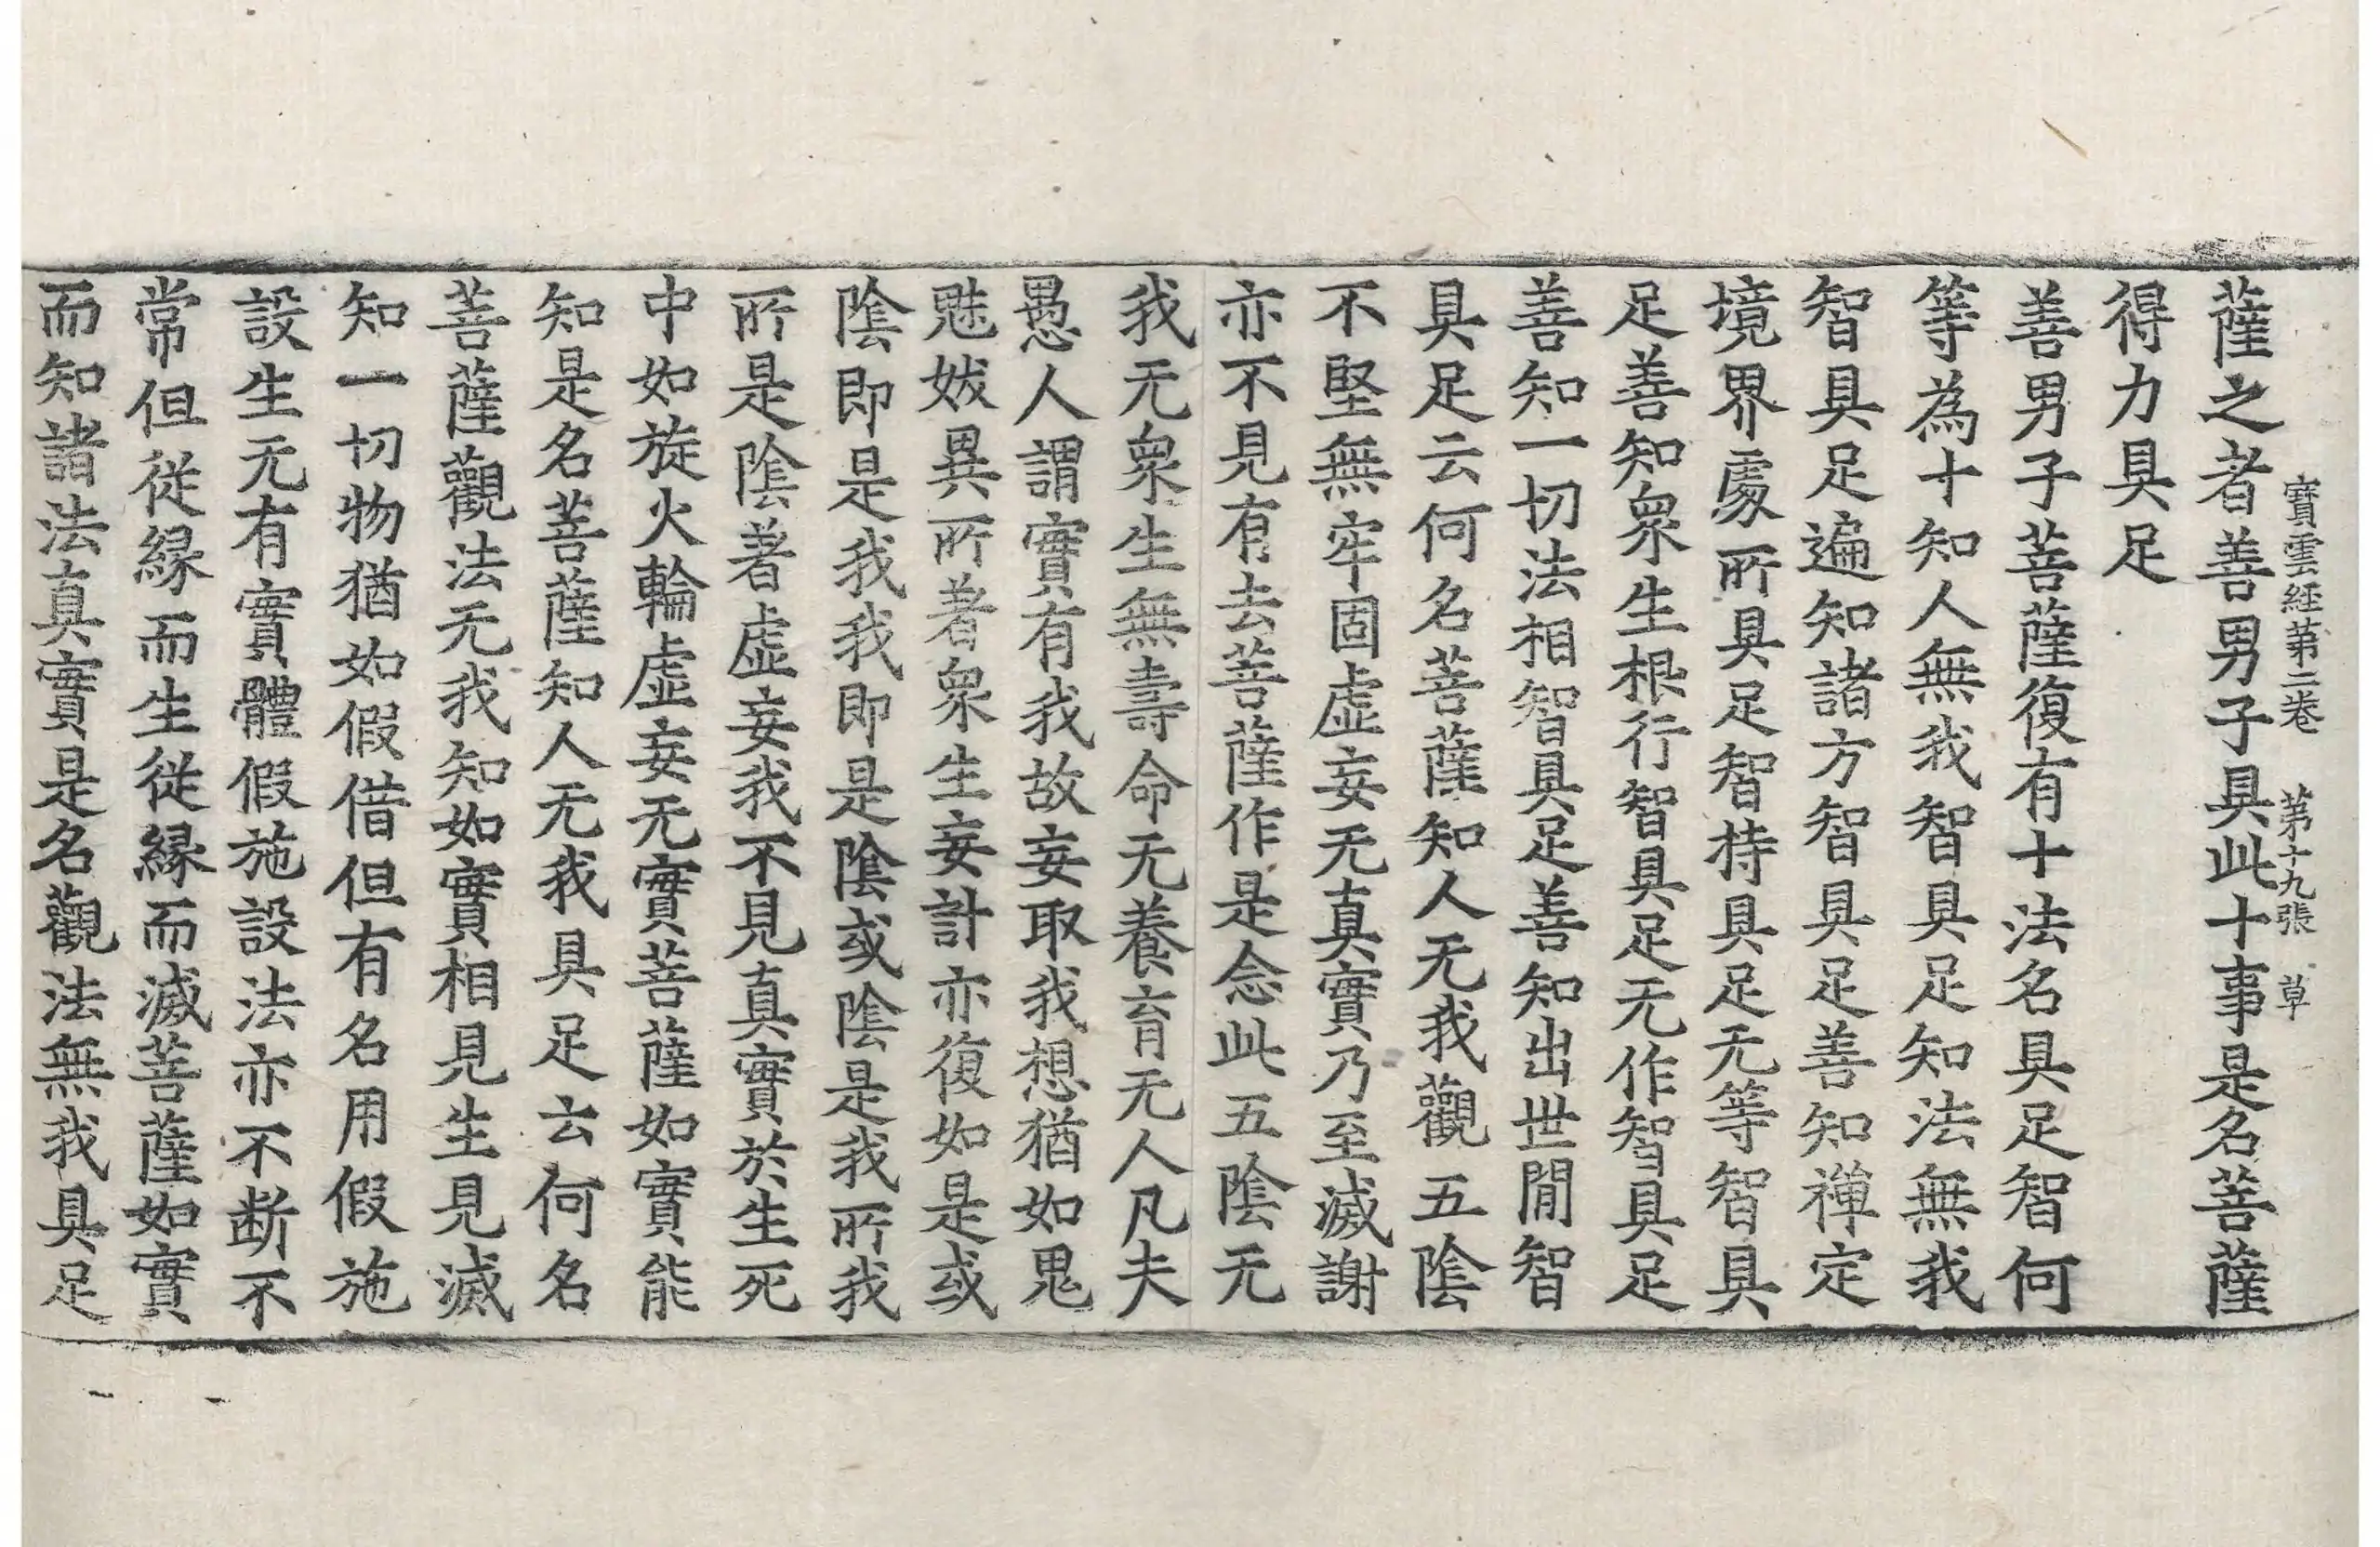 寶雲経苐二巻　苐十九張　草
薩之者善男子具此十事是名菩薩
得力具足
善男子菩薩復有十法名具足智何
等為十知人無我智具足知法無我
智具足遍知諸方智具足善知禅定
境界處所具足智持具足无等智具
足善知衆生根行智具足无作智具足
善知一切法相智具足善知出世閒智
具足云何名菩薩知人无我觀五陰
不堅無牢固虛妄无真實乃至滅謝
亦不見有去菩薩作是念此五陰无
我无衆生無壽命无養育无人凡夫
愚人謂實有我故妄取我想猶如鬼
魅妭異所著衆生妄計亦復如是或
陰即是我我即是陰或陰是我所我
所是陰著虛妄我不見真實於生死
中如旋火輪虛妄无實菩薩如實能
知是名菩薩知人无我具足云何名
菩薩觀法无我知如實相見生見滅
知一切物猶如假借但有名用假施
設生无有實體假施設法亦不断不
常但従縁而生従縁而滅菩薩如實
而知諸法真實是名觀法無我具足